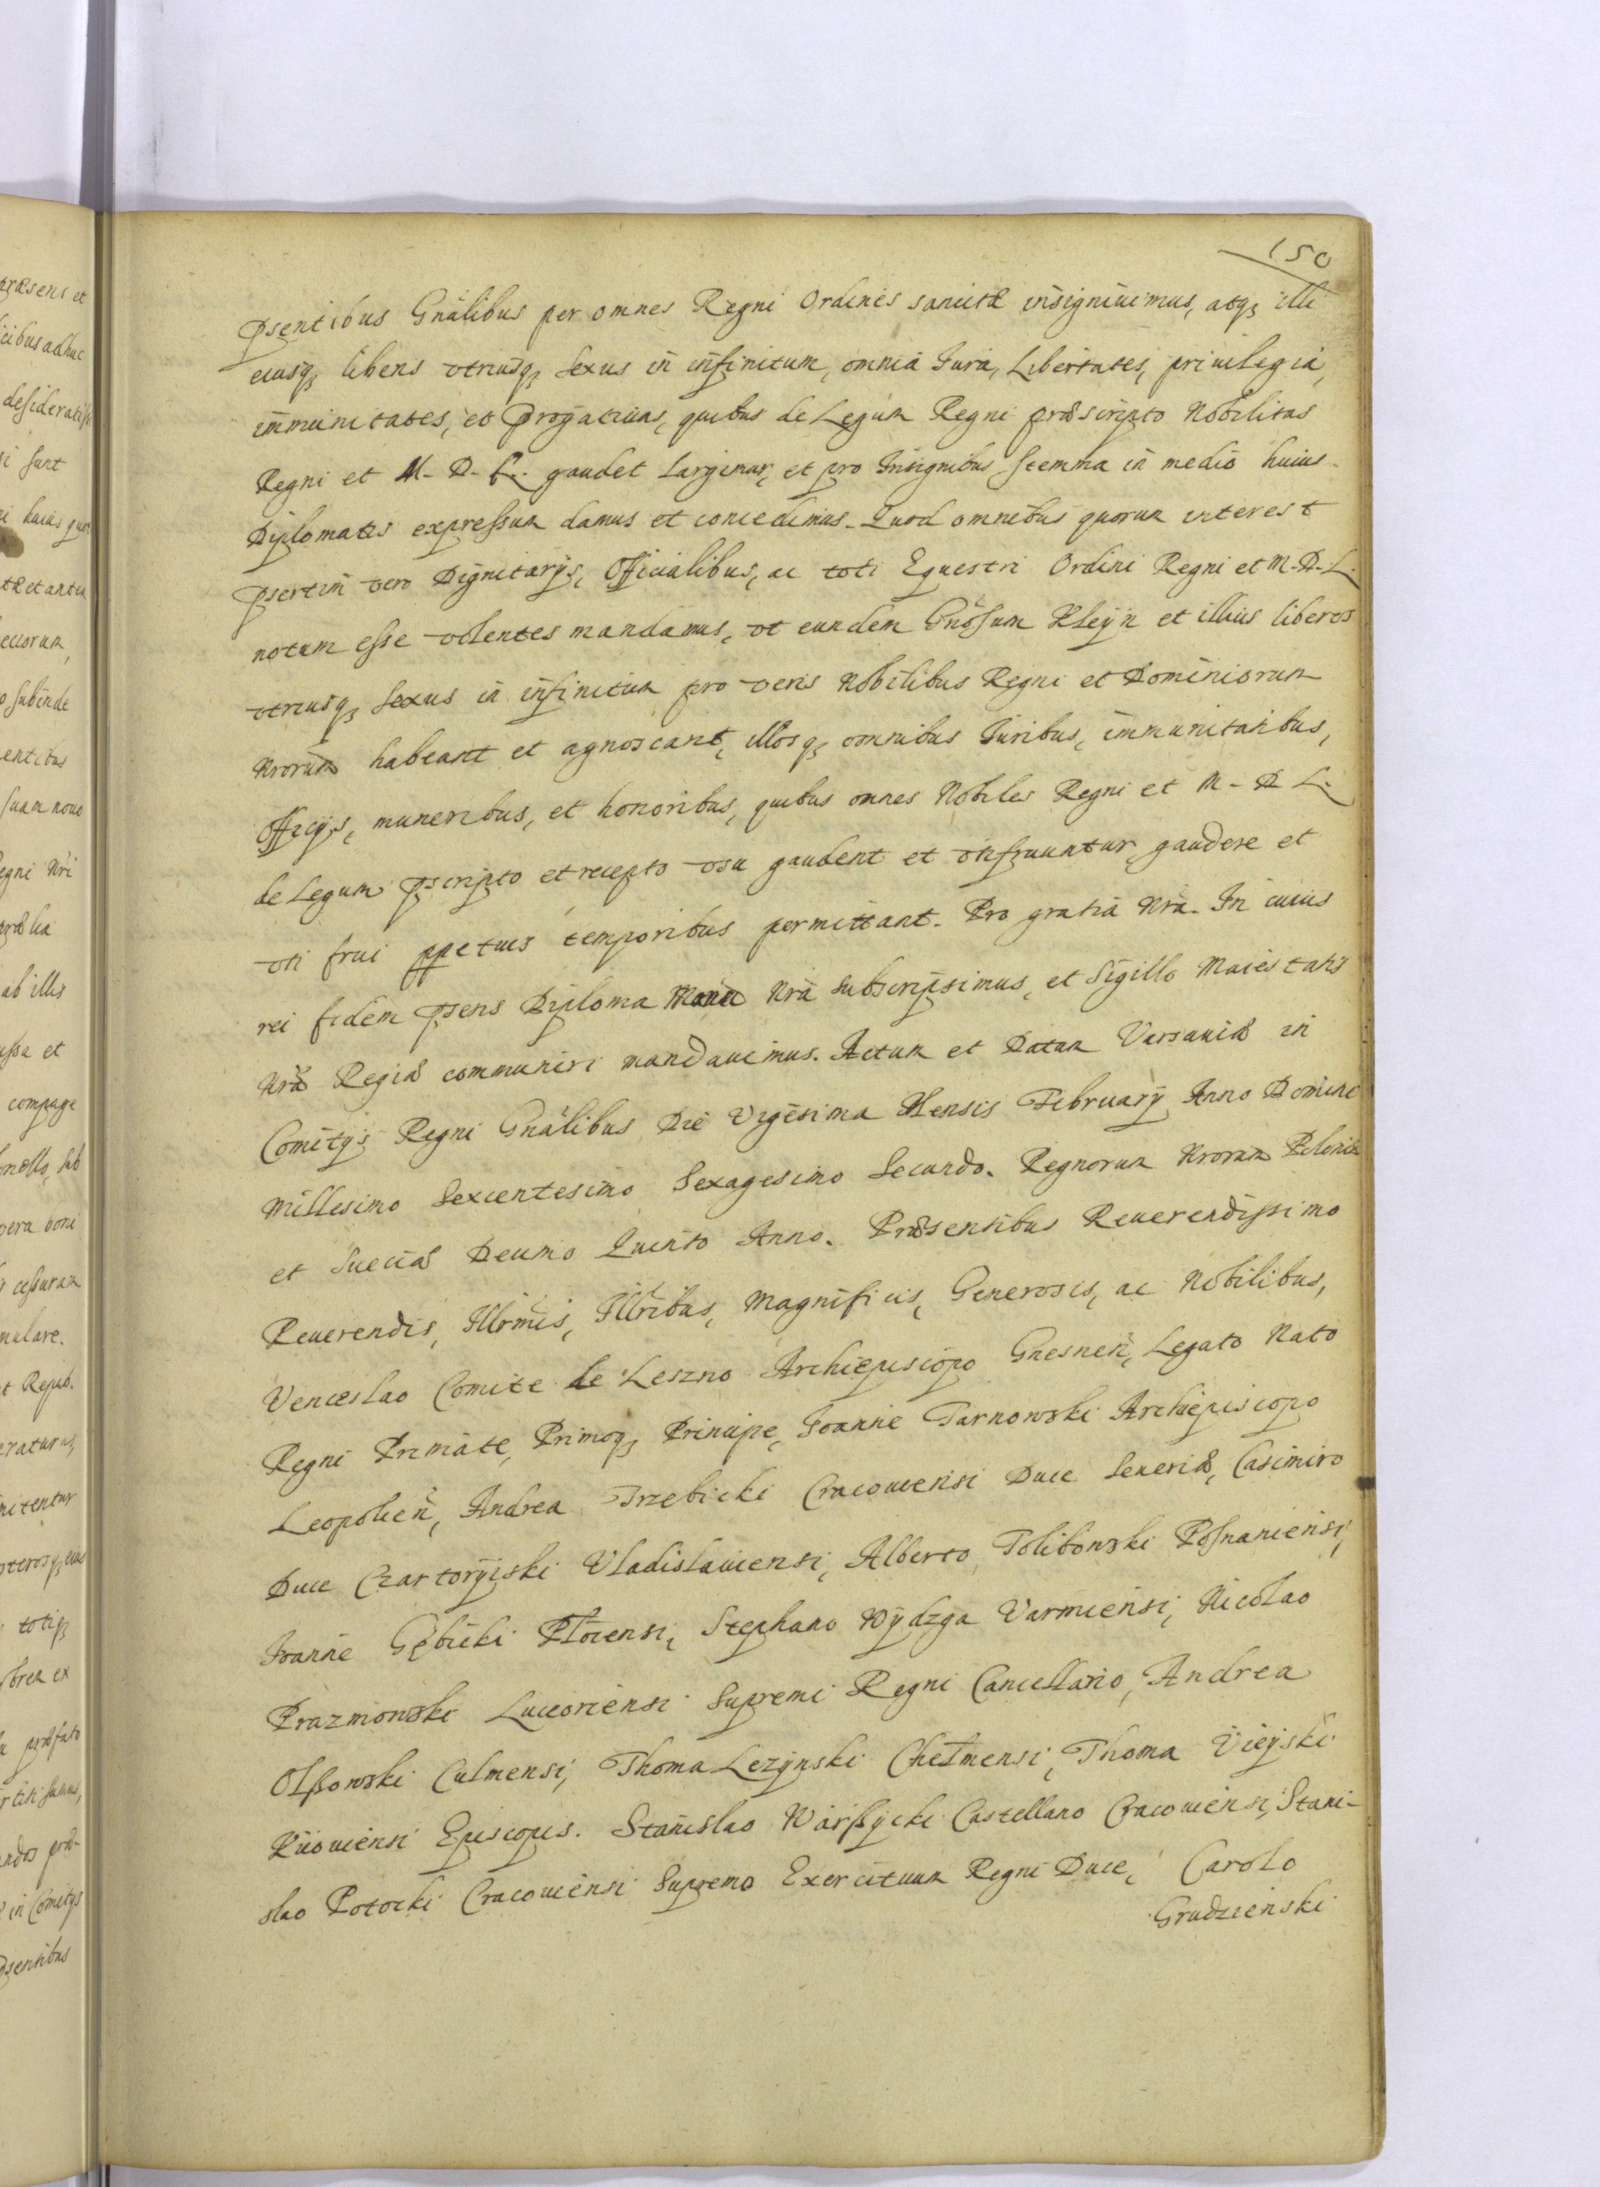 150
psentibus Gnãlibus per omnes Regni Ordines sancitæ insigniuimus, atq; illi
eiusq; libens vtriusq; Sexus in infinitum, omnia Jura, Libertates, priuilegia,
immunitates, et Progatiuas, quibus de Legum Regni præscripto Nobilitas
Regni et M. D. L. gaudet Largimur, et pro Insignibus stemma in medio huius
Diplomatis expressum damus et concedimus. Quod omnibus quorum interest
psertim vero Dignitarijs, Officialibus, ac toti Equestri Ordini Regni et M. D. L.
notum esse volentes mandamus, vt eundem Gnõsum Kleyn et illius liberos
vtriusq; Sexus in infinitum pro veris Nobilibus Regni et Dominiorum
Nrorum habeant et agnoscant, illosq; omnibus Juribus, immunitatibus,
Officijs, muneribus, et honoribus, quibus omnes Nobiles Regni et M. D. L.
de Legum pscripto et recepto vsu gaudent et vtifruuntur gaudere et
vti frui ppetuis temporibus permittant. Pro gratia Nrã. In cuius
rei fidem psens Diploma Manu Nrã subscripsimus, et Sigillo Maiestatis
Nræ Regiæ communiri mandauimus. Actum et Datum Varsauiæ in
Comitijs Regni Gnãlibus Die Vigesima Mensis February Anno Domini
Millesimo Sexcentesimo Sexagesimo Secundo. Regnorum Nrorum Poloniæ
et Sueciæ Decimo Quinto Anno. Præsentibus Reuerendissimo
Reuerendis, Illrmis, Illribus, Magnificis, Generosis, ac Nobilibus,
Venceslao Comite de Leszno Archiepiscopo Gnesneñ, Legato Nato
Regni Primate, Primoq; Principe, Joanne Tarnowski Archiepiscopo
Leopolieñ, Andrea Trzebicki Cracouiensi Duce Seueriæ, Casimiro
Duce Czartoryiski Vladislauiensi, Alberto Tolibowski Posnaniensi,
Joanne Gębicki Płocensi, Stephano Wydzga Varmiensi, Nicolao
Prazmowski Luceoriensi Supremi Regni Cancellario, Andrea
Olßowski Culmensi, Thoma Lezynski Chełmensi, Thoma Vieyski
Kiiouiensi Episcopis. Stanislao Warßycki Castellano Cracouiensi, Stani-
slao Potocki Cracouiensi Supremo Exercituum Regni Duce, Carolo
Grudzienski